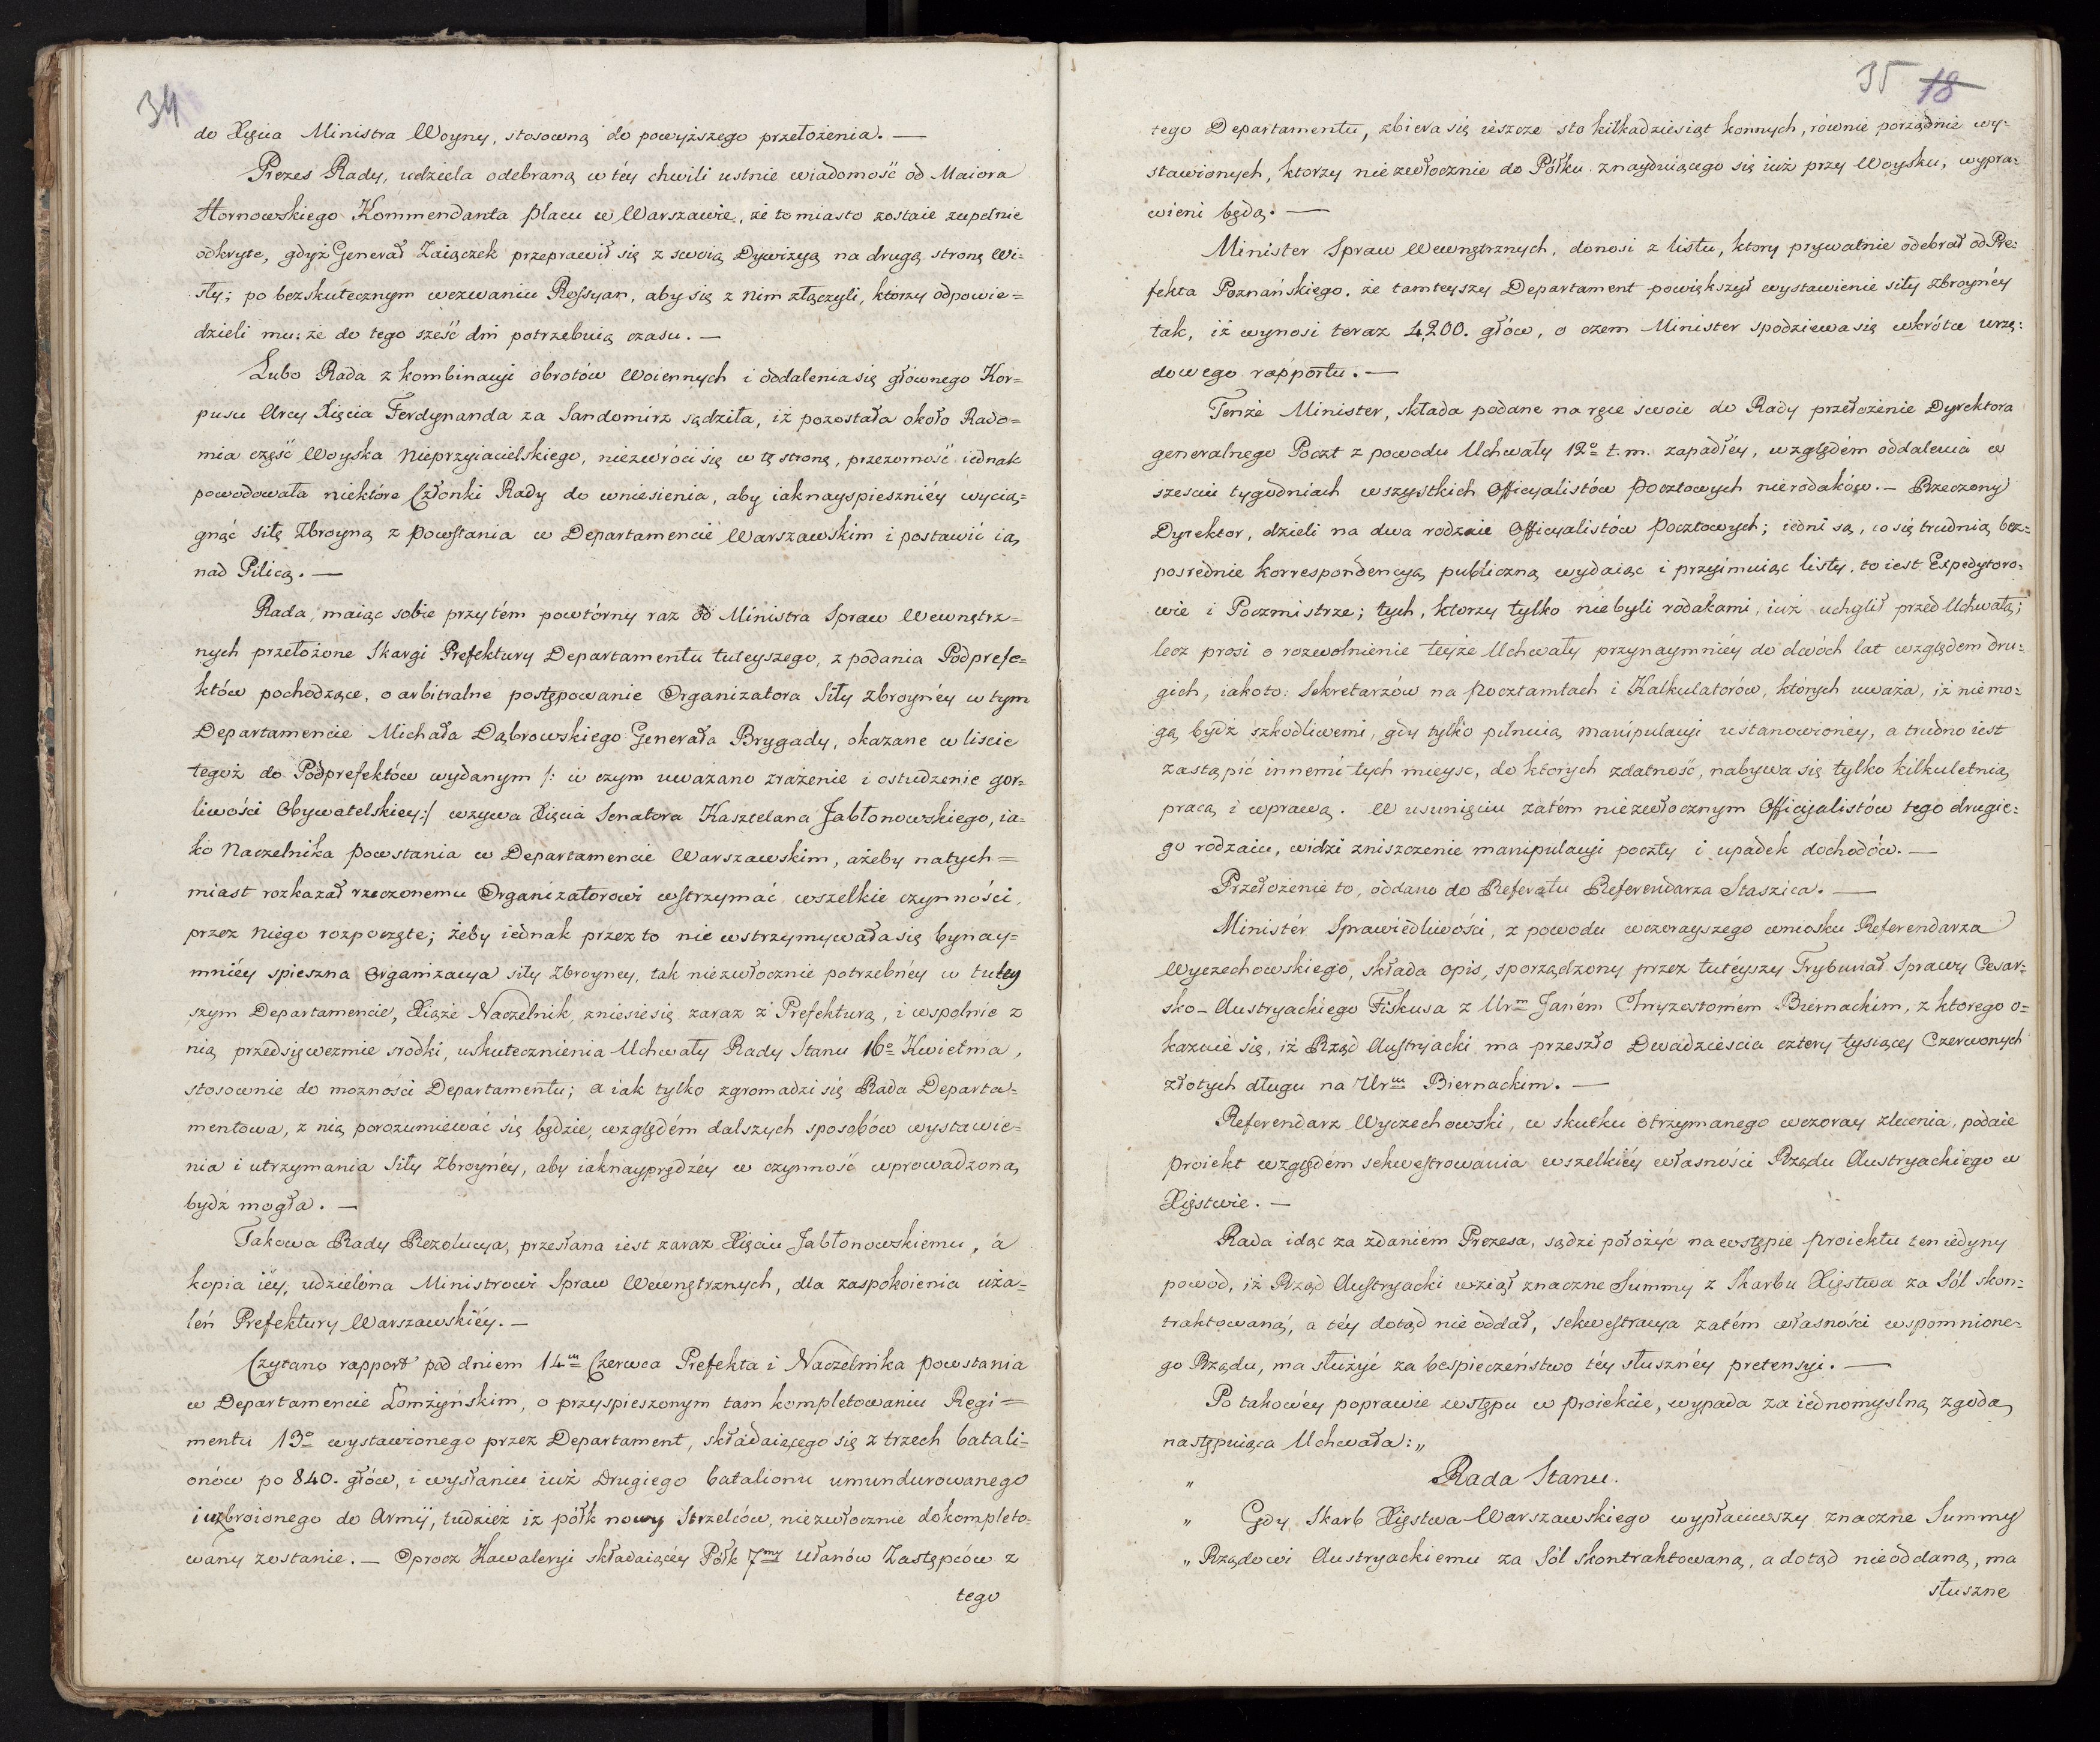 34
do Xięcia Ministra Woyny, stosowną do powyższego przełożenia. —
Prezes Rady, udziela odebraną w téy chwili ustnie wiadomość od Maiora
Hornowskiego Kommendanta placu w Warszawie, że to miasto zostaie zupełnie
odkryte, gdyż Generał Zaiączek przeprawił się z swoią Dywizyą na drugą stronę Wi=
sły; po bezskutecznym wezwaniu Rossyan, aby się z nim złączyli, ktorzy odpowie=
dzieli mu: że do tego sześć dni potrzebuią czasu. —
Lubo Rada z kombinacyi obrotów Woiennych i oddalenia się głównego Kor=
pusu Arcy Xięcia Ferdynanda za Sandomirz sądziła, iż pozostała około Rado=
mia część Woyska Nieprzyiacielskiego, niezwróci się w tę stronę, przezorność iednak
powodowała niektóre Członki Rady do wniesienia, aby iaknayspieszniéy wycią=
gnąć siłę Zbroyną z Powstania w Departamencie Warszawskim i postawić ią
nad Pilicą. —
Rada, maiąc sobie przytém powtórny raz od Ministra Spraw Wewnętrz=
nych przełożone Skargi Prefektury Departamentu tuteyszego, z podania Podprefe=
któw pochodzące, o arbitralne postępowanie Organizatora Siły zbroynéy w tym
Departamencie Michała Dąbrowskiego Generała Brygady, okazane w liscie
tegoż do Podprefektów wydanym /: w czym uważano zrażenie i ostudzenie gor=
liwości Obywatelskiey:/ wzywa Xięcia Senatora Kasztelana Jabłonowskiego, ia=
ko Naczelnika powstania w Departamencie Warszawskim, ażeby natych=
miast rozkazał rzeczonemu Organizatorowi wstrzymać wszelkie czynności,
przez niego rozpoczęte; żeby iednak przez to nie wstrzymywała się bynay=
mniéy spieszna Organizacya siły zbroyney, tak niezwłocznie potrzebnéy w tutey
szym Departamencie, Xiąże Naczelnik zniesie się zaraz z Prefekturą, i wspolnie z
nią przedsięwezmie srodki, uskutecznienia Uchwały Rady Stanu 16º Kwietnia,
stosownie do mozności Departamentu; a iak tylko zgromadzi się Rada Departa=
mentowa, z nią porozumiewać się będzie, względém dalszych sposobów wystawie=
nia i utrzymania Siły Zbroynéy, aby iaknayprędzéy w czynność wprowadzoną
bydź mogła. —
Takowa Rady Rezolucya, przesłana iest zaraz Xięciu Jabłonowskiemu, a
kopia iéy, udzielona Ministrowi Spraw Wewnętrznych, dla zaspokoienia uża=
leń Prefektury Warszawskiéy. —
Czytano rapport pod dniem 14m Czerwca Prefekta i Naczelnika powstania
w Departamencie Łomżyńskim, o przyspieszonym tam kompletowaniu Regi=
mentu 13º wystawionego przez Departament, składaiącego się z trzech batali=
onów po 840. głów, i wysłaniu iuż Drugiego batalionu umundurowanego
i uzbroionego do Armij, tudzież iż półk nowy Strzelców, niezwłocznie dokompleto=
wany zostanie. — Oprocz Kawaleryi składaiącéy Półk 7my Ułanów Zastępców z
tego
35 18
tego Departamentu, zbiera się ieszcze sto kilkadziesiąt konnych, równie porządnie wy=
stawionych, ktorzy niezwłocznie do Półku znayduiącego się iuż przy Woysku, wypra=
wieni będą. —
Minister Spraw Wewnętrznych, donosi z listu, ktory prywatnie odebrał od Pre=
fekta Poznańskiego, że tamteyszy Departament powiększył wystawienie siły zbroynéy
tak, iż wynosi teraz 4,200. głów, o czem Minister spodziewa się wkrótce urzę=
dowego rapportu. —
Tenże Minister, składa podane na ręce swoie do Rady przełożenie Dyrektora
generalnego Poczt z powodu Uchwały 12º t. m. zapadłéy, względém oddalenia w
szesciu tygodniach wszystkich Officyalistów pocztowych nierodaków. — Rzeczony
Dyrektor, dzieli na dwa rodzaie Officyalistów pocztowych; iedni są, co się trudnią bez=
posrednie korrespondencyą publiczną wydaiąc i przyimuiąc listy, to iest Expedytoro=
wie i Poczmistrze; tych, ktorzy tylko niebyli rodakami, iuż uchylił przed Uchwałą;
lecz prosi o rozwolnienie teyże Uchwały przynaymniéy do dwóch lat względem dru=
gich, iakoto: Sekretarzów na pocztamtach i Kalkulatorów, ktorych uważa, iż niemo=
gą bydź szkodliwemi, gdy tylko pilnuią manipulacyi ustanowionéy, a trudno iest
zastąpić innemi tych mieysc, do ktorych zdatność, nabywa się tylko kilkuletnią
pracą i wprawą. W usunięciu zatém niezwłocznym Officyalistów tego drugie=
go rodzaiu, widzi zniszczenie manipulacyi poczty i upadek dochodów. —
Przełożenie to, oddano do Referatu Referendarza Staszica. —
Ministér Sprawiedliwości, z powodu wczorayszego wniosku Referendarza
Wyczechowskiego, składa opis, sporządzony przez tuteyszy Trybunał Sprawy Cesar=
sko-Austryackiego Fiskusa z Urm Janém Chryzostomém Biernackim, z ktorego o=
kazuie się, iż Rząd Austryacki ma przeszło Dwadziescia cztery tysiący Czerwonych
złotych długu na Urm Biernackim. —
Referendarz Wyczechowski, w skutku otrzymanego wczoray zlecenia, podaie
proiekt względém sekwestrowania wszelkiéy własności Rządu Austryackiego w
Xięstwie. —
Rada idąc za zdaniém Prezesa, sądzi położyć na wstępie proiektu ten iedyny
powód, iż Rząd Austryacki wziął znaczne Summy z Skarbu Xięstwa za Sól skon=
traktowaną, a téy dotąd nie oddał, sekwestracya zatém własności wspomnione=
go Rządu, ma służyć za bespieczeństwo téy słusznéy pretensyi. —
Po takowéy poprawie wstępu w proiekcie, wypada za iednomyslną zgodą
następuiąca Uchwała: „
„ Rada Stanu.
„ Gdy Skarb Xięstwa Warszawskiego wypłaciwszy znaczne Summy
„ Rządowi Austryackiemu za Sól skontraktowaną, a dotąd nieoddaną, ma
słuszne